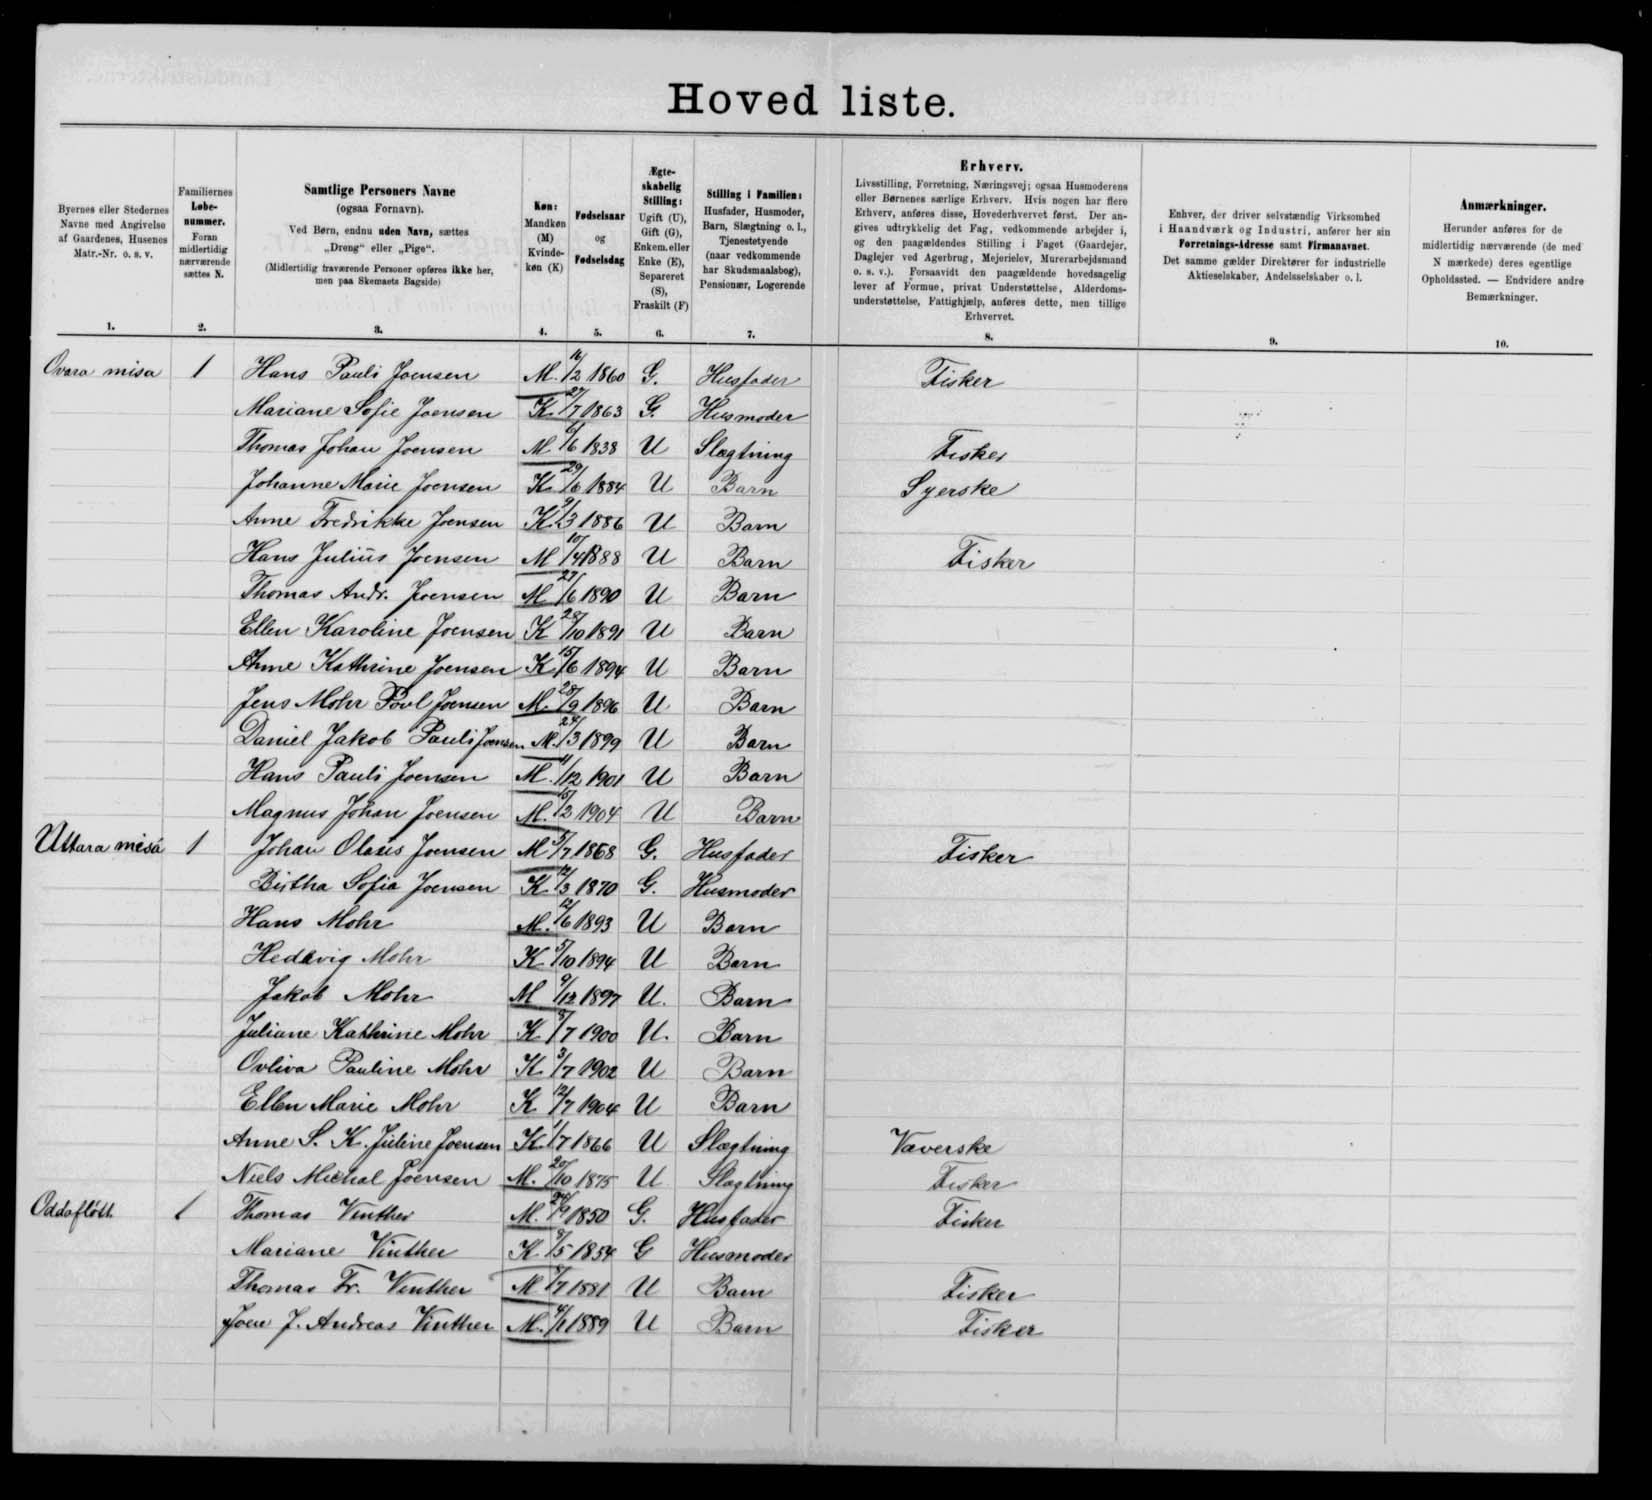 Hoved liste.
Byernes eller Stedernes
Navne med Angivelse
af Gaardenes, Husenes
Matr.-Nr. o. s. v.
1.
Familiernes
Løbe-
nummer.
Foran
midlertidig
nærværende
sættes N.
2.
Samtlige Personers Navne
(ogsaa Fornavn).
Ved Børn, endnu uden Navn, sættes
„Dreng" eller „Pige".
(Midlertidig fraværende Personer opføres ikke her,
men paa Skemaets Bagside)
3.
Køn:
Mandkøn
(M)
Kvinde-
køn (K)
4.
Fødselsaar
og
Fødselsdag
5.
Ægte-
skabelig
Stilling:
Ugift (U),
Gift (G),
Enkem. eller
Enke (E),
Separeret
(S),
Fraskilt (F)
6.
Stilling i Familien:
Husfader, Husmoder,
Barn, Slægtning o. l.,
Tjenestetyende
(naar vedkommende
har Skudsmaalsbog),
Pensionær, Logerende
7.
Erhverv.
Livsstilling, Forretning, Næringsvej; ogsaa Husmoderens
eller Børnenes særlige Erhverv. Hvis nogen har flere
Erhverv, anføres disse, Hovederhvervet først. Der an-
gives udtrykkelig det Fag, vedkommende arbejder i,
og den paagældendes Stilling i Faget (Gaardejer,
Daglejer ved Agerbrug, Mejerielev, Murerarbejdsmand
o. s. v.). Forsaavidt den paagældende hovedsagelig
lever af Formue, privat Understøttelse, Alderdoms-
understøttelse, Fattighjælp, anføres dette, men tillige
Erhvervet.
8.
Enhver, der driver selvstændig Virksomhed
i Haandværk og Industri, anfører her sin
Forretnings-Adresse samt Firmanavnet.
Det samme gælder Direktører for industrielle
Aktieselskaber, Andelsselskaber o. l.
9.
Anmærkninger.
Herunder anføres for de
midlertidig nærværende (de med
N mærkede) deres egentlige
Opholdssted. — Endvidere andre
Bemærkninger.
10.
Ovara misa 1 Hans Pauli Joensen M. 16/2 1860 G. Husfader Fisker
Mariane Sofie Joensen K 27/7 1863 G. Husmoder
Thomas Johan Joensen M /6 1838 U Slægtning Fisker
Johanne Marie Joensen K 29/6 1884 U Barn Syerske
Anne Fredrikke Joensen K 9/3 1886 U Barn
Hans Julius Joensen M 10/4 1888 U Barn Fisker
Thomas Andr. Joensen M 27/6 1890 U Barn
Ellen Karoline Joensen K 28/10 1891 U Barn
Anne Kathrine Joensen K 15/6 1894 U Barn
Jens Mohr Povl Joensen M. 28/9 1896 U Barn
Daniel Jakob Pauli Joensen M. 24/3 1899 U Barn
Hans Pauli Joensen M. 11/12 1901 U Barn
Magnus Johan Joensen M. 15/2 1904 U Barn
Uttara misá 1 Johan Olaus Joensen M 5/7 1868 G. Husfader Fisker
Birtha Sofia Joensen K 14/3 1870 G. Husmoder
Hans Mohr M. 12/6 1893 U Barn
Hedevig Mohr K 5/10 1894 U Barn
Jakob Mohr M 9/12 1897 U. Barn
Juliane Kathrine Mohr K 8/7 1900 U. Barn
Ovliva Pauline Mohr K 3/7 1902 U Barn
Ellen Marie Mohr K 12/7 1904 U Barn
Anne S. K. Juline Joensen K 1/7 1866 U Slægtning Væverske
Niels Michal Joensen M. 20/10 1875 U Slægtning Fisker
Oddaflótt 1 Thomas Vinther M. 24/9 1850 G. Husfader Fisker
Mariane Vinther K 9/5 1854 G Husmoder
Thomas Fr. Vinther M 8/7 1881 U Barn Fisker
Joen J. Andreas Vinther M. 4/1 1889 U Barn Fisker